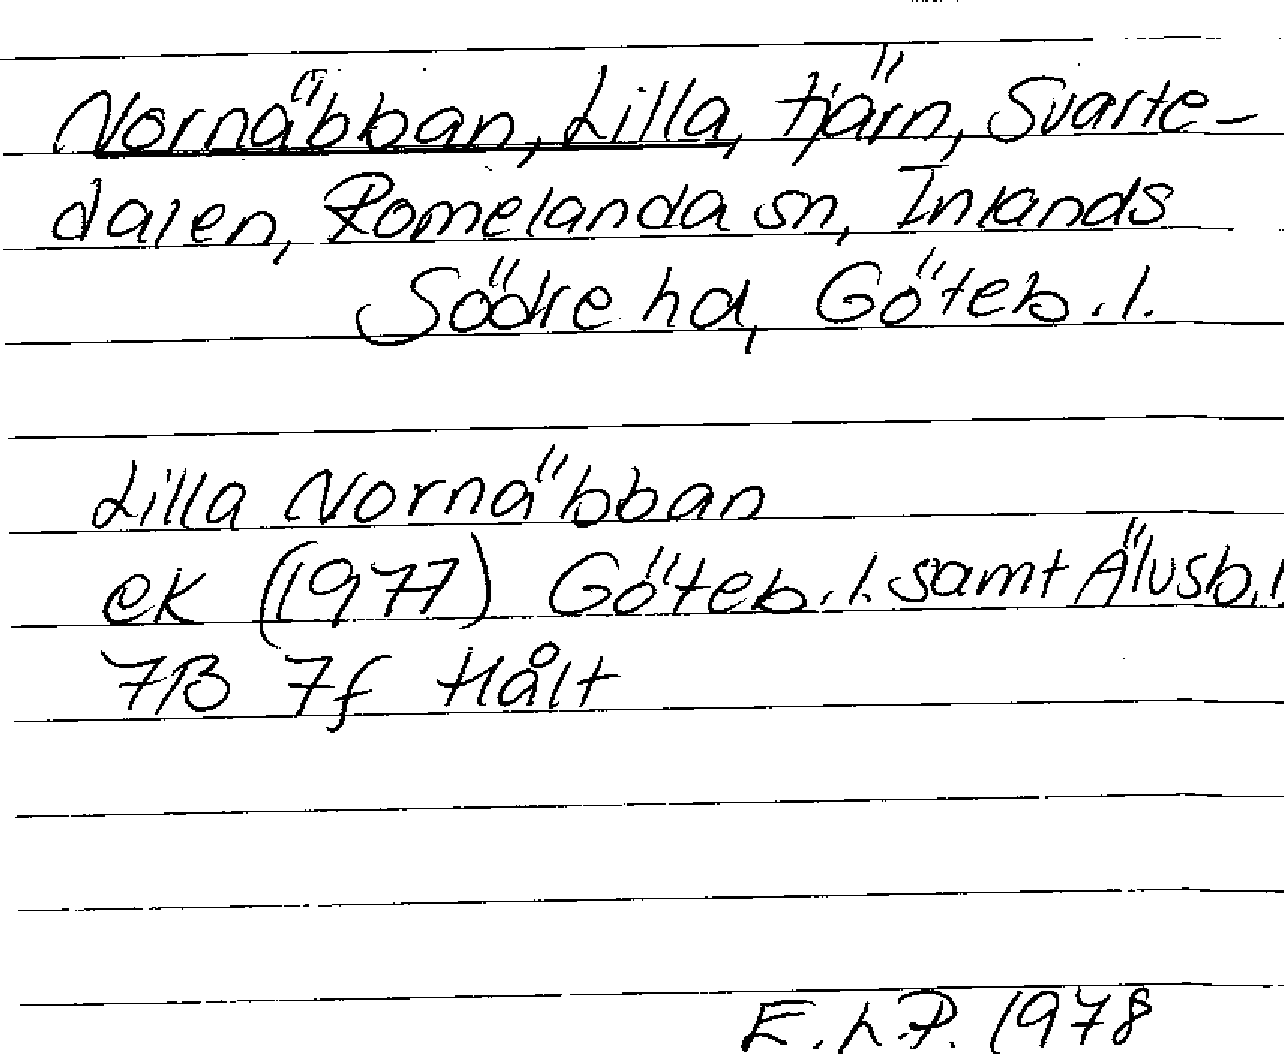 Nornäbban, Lilla, tjärn, Svarte-
dalen, Romelanda sn, Inlands
Södre hd, Göteb.l.
Lilla Nornäbban
ek (1977) Göteb.l. samt Älvsb.l.
7B 7f Hålt
E.L.P. 1978